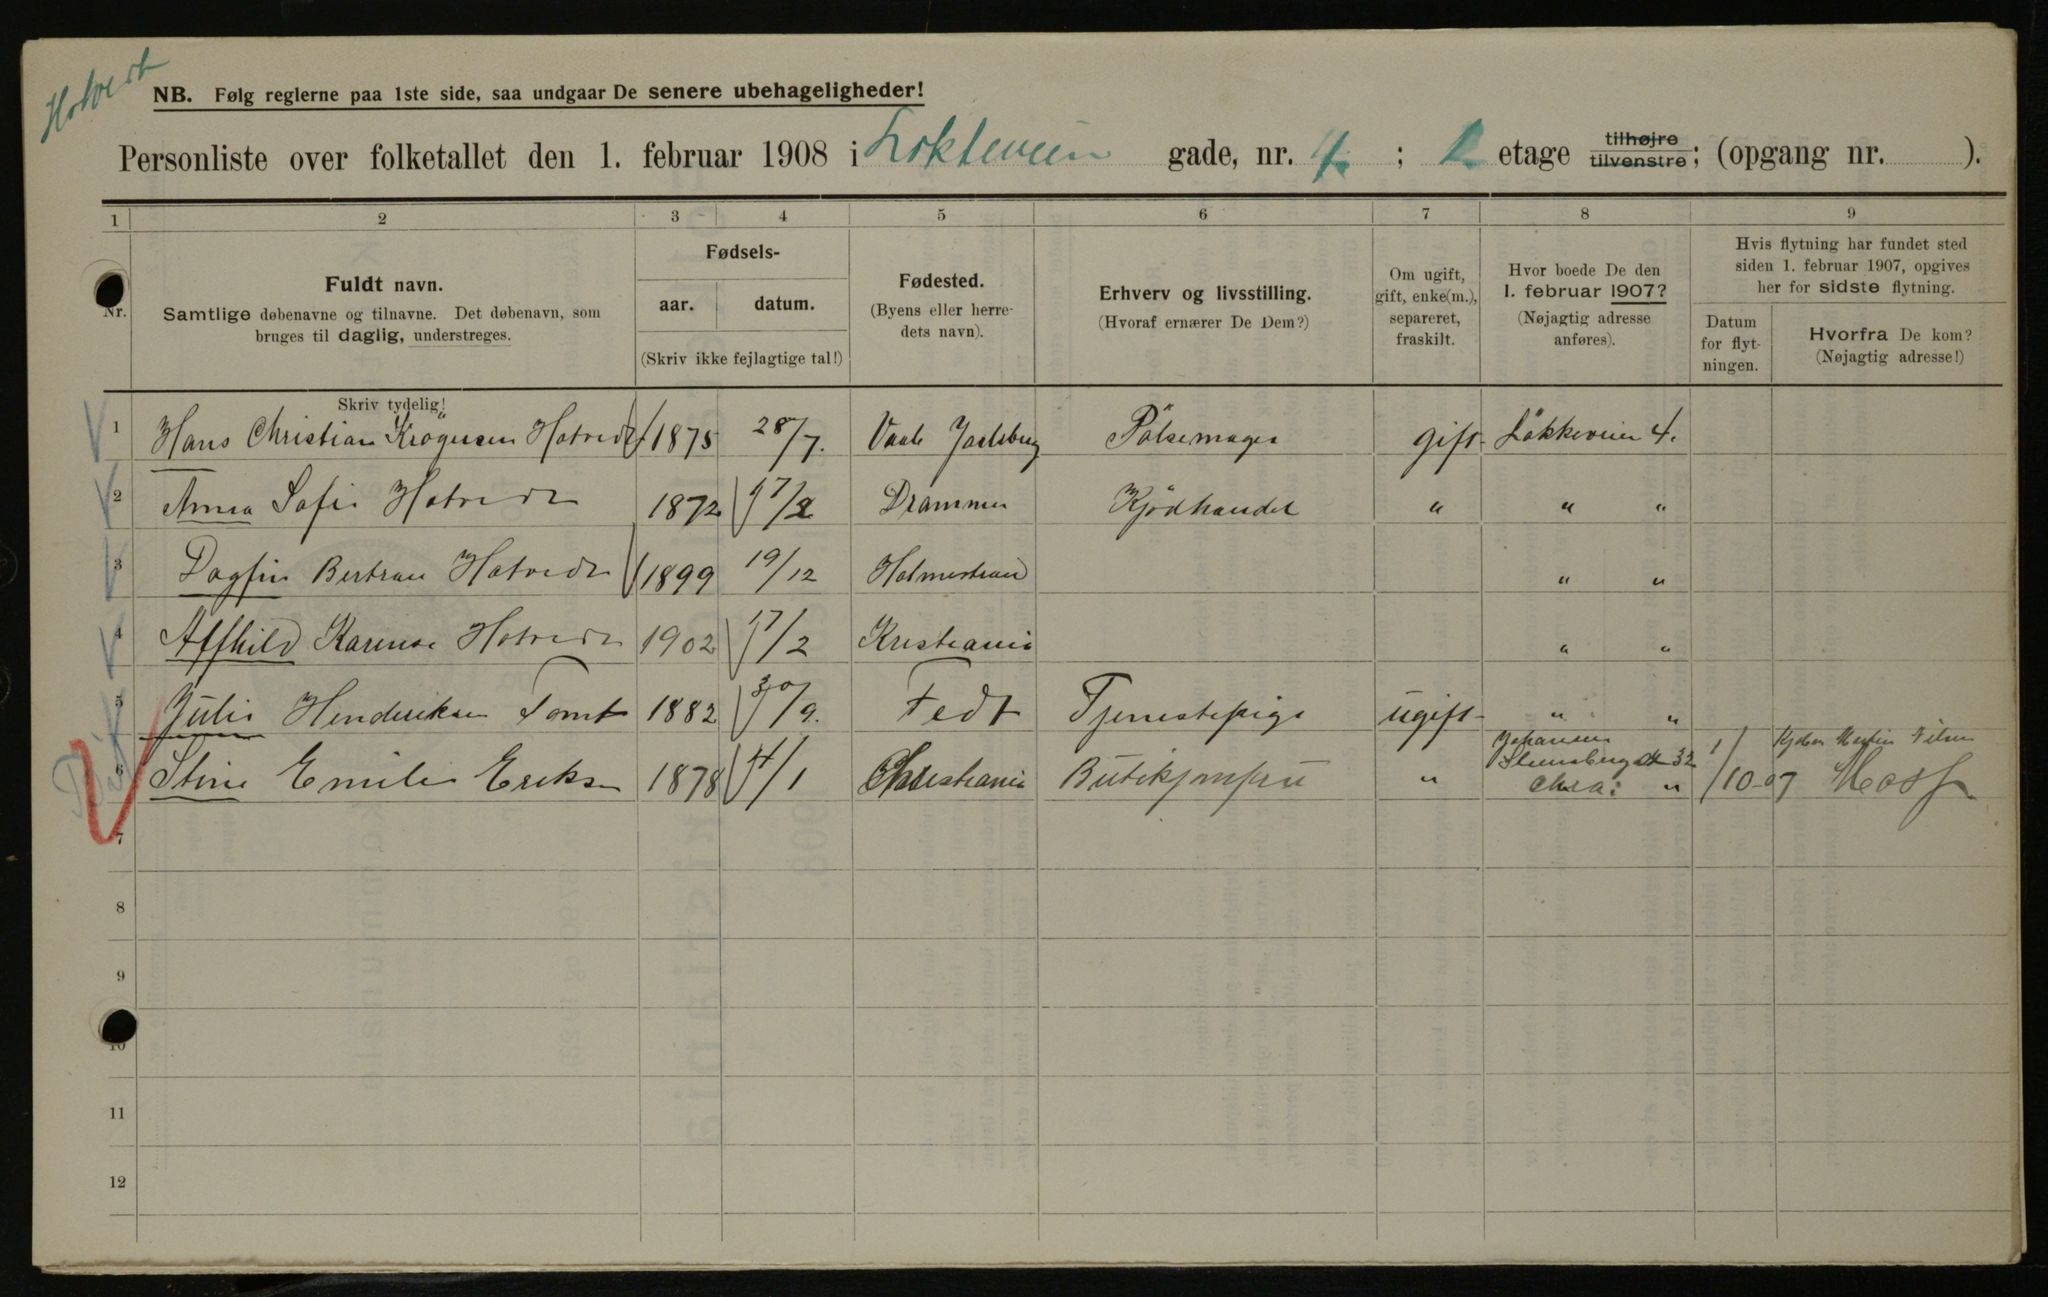 Hotvedt
NB. Følg reglerne paa 1ste side, saa undgaar De senere ubehageligheder!
Personliste over folketallet den 1. februar 1908 i Løkkeveien gade, nr. 4 ; 2 etage tilhøjre tilvenstre; (opgang nr. ).
1 2 3 4 5 6 7 8 9
Nr.
Fuldt navn.
Samtlige døbenavne og tilnavne. Det døbenavn, som
bruges til daglig, understreges.
Skriv tydelig!
Fødsels-
aar. datum.
(Skriv ikke fejlagtige tal!)
Fødested.
(Byens eller herre-
dets navn).
Erhverv og livsstilling.
(Hvoraf ernærer De Dem?)
Om ugift,
gift, enke(m.),
separeret,
fraskilt.
Hvor boede De den
1. februar 1907?
(Nøjagtig adresse
anføres).
Hvis flytning har fundet sted
siden 1. februar 1907, opgives
her for sidste flytning.
Datum
for flyt-
ningen.
Hvorfra De kom?
(Nøjagtig adresse!)
1 Hans Christian Hotvedt 1875 28/7. Vaale Jarlsberg Pölsemager gift Lökkeveien 4.
2 Anna Sofie Hotvedt 1872 17/2 Drammen Kjödhandel " " "
3 Dagfin Bertran Hotvedt 1899 19/12 Holmestrand " "
4 Alfhild Karense Hotvedt 1902 17/2 Kristiania " "
5 Julie Hendriksen Tomt 1882 30/9. Fedt Tjenestepige ugift " "
6 Stine Emilie Eriksen 1878 14/1 Christiania Butikjomfru " Johansen 32 Chra: " 1/10-07 Martin Nilsen Moss
7
8
9
10
11
12